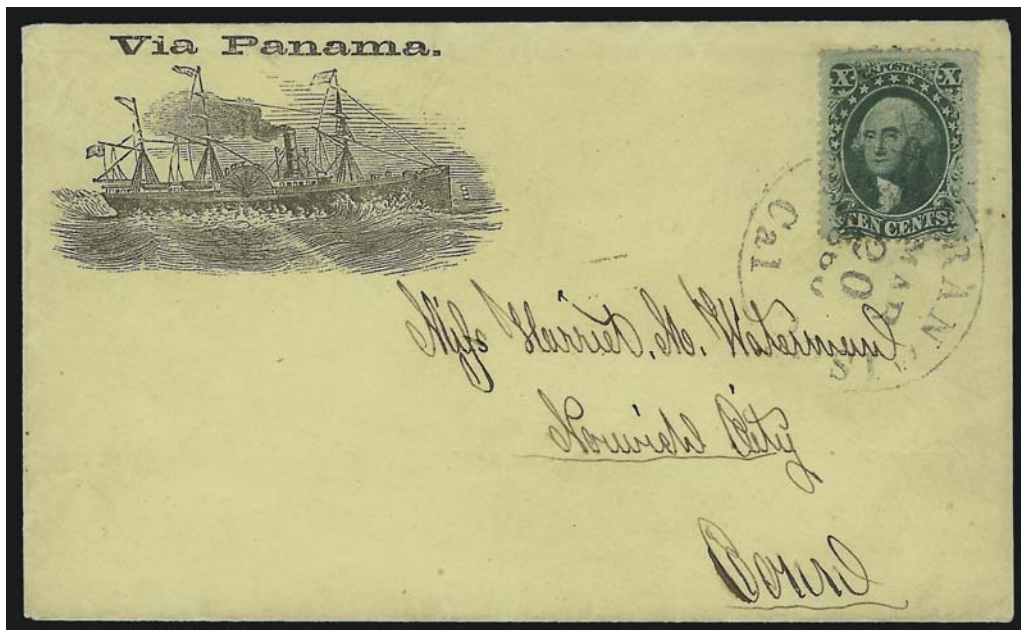 Via Panama.
X U.S. POSTAGE X
TEN CENTS
FRAN
Cal
MAR
20
1860
Miss Harriet. M. Waterman
Norwich City
Conn